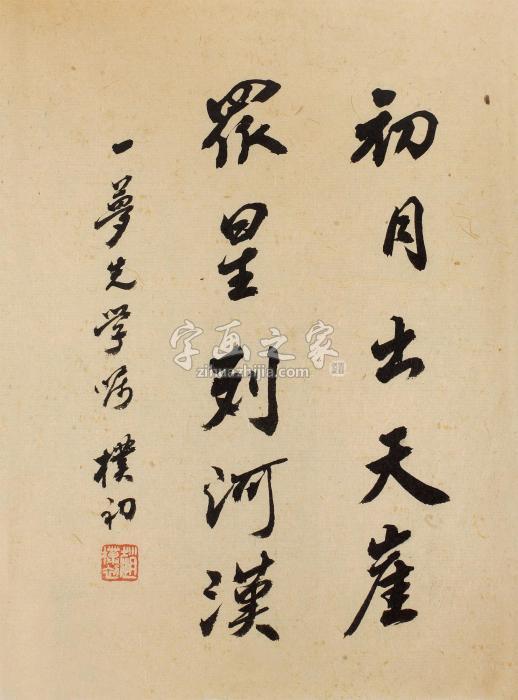 初月出天崖
眾星列河漢
一夢先学嘱 樸初
趙樸初
字画之家
zihuazhijia.com